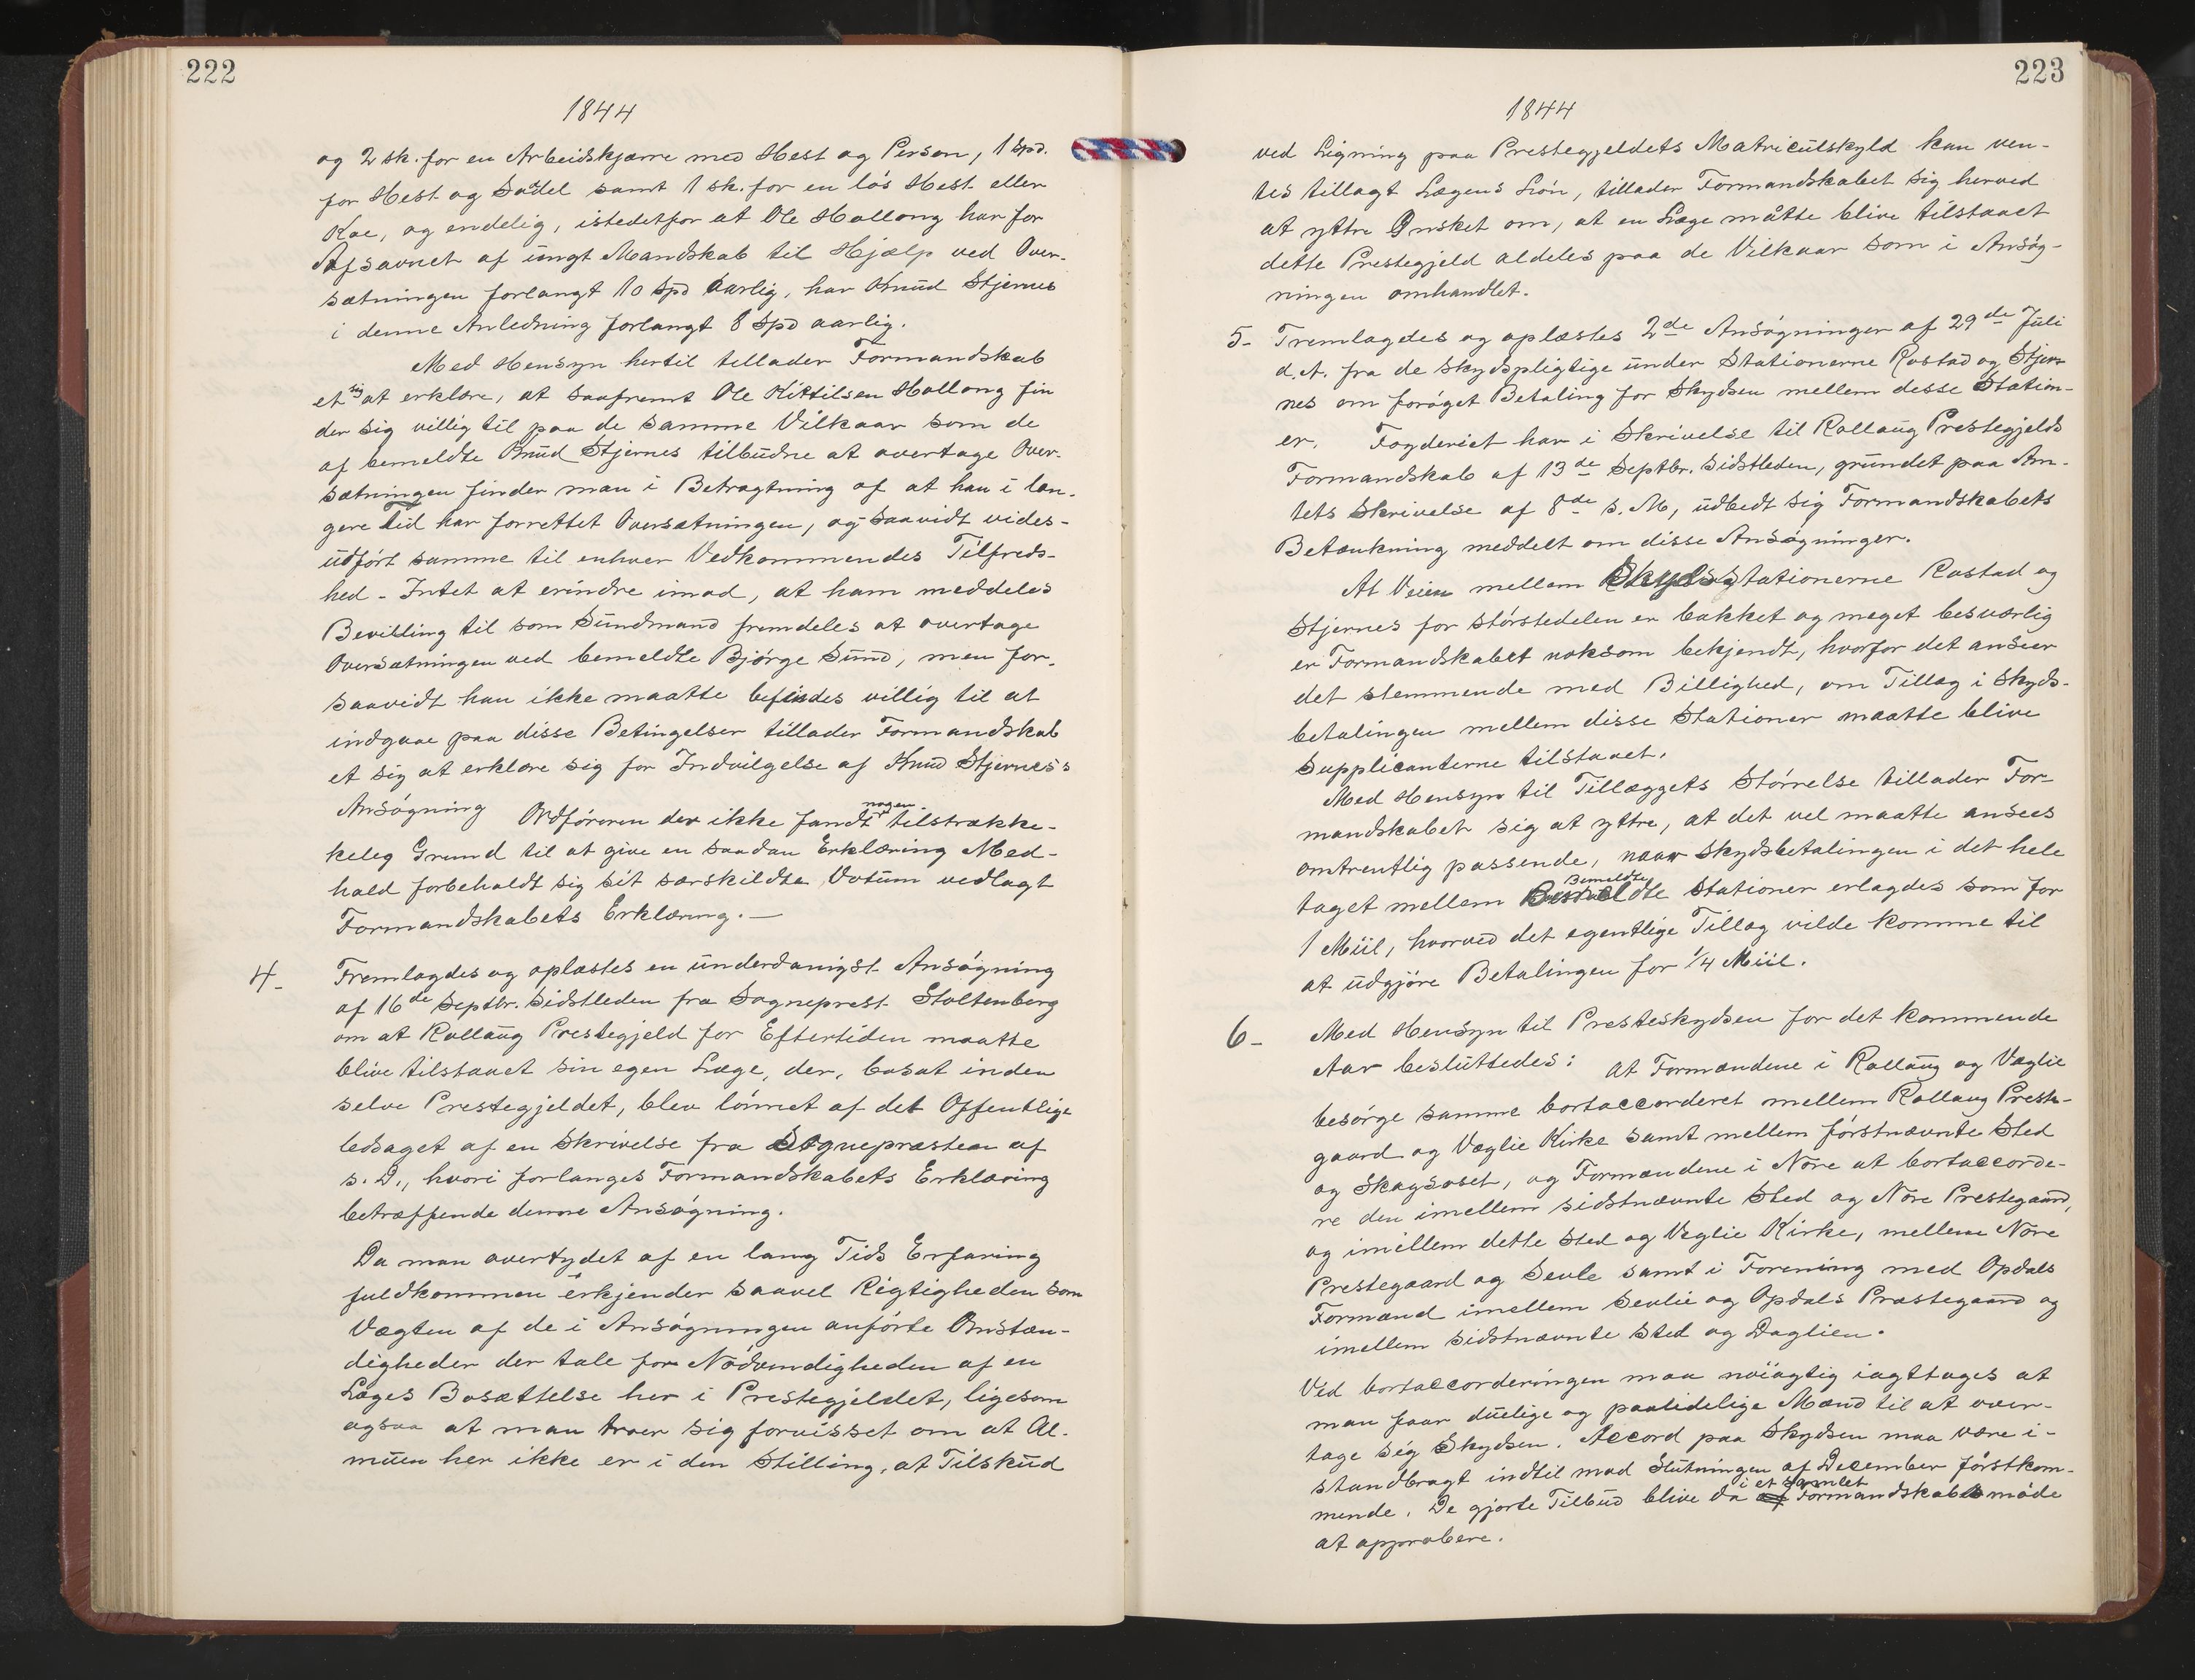 222
1844
og 2 sk. for en Arbeidskjærre med Hest og Person, 1 spd.
for Hest og Sadel samt 1 sk. for en løs Hest eller
Koe, og endelig, istedetfor at Ole Hallong har for
Afsavnet af ungt Mandskab til Hjælp ved Over-
sætningen forlangt 10 Spd aarlig, har Knud Stjernes
i denne Anledning forlangt 8 Spd aarlig.
Med Hensyn hertil tillader Formandskab
et sig at erklære, at saafremt Ole Kittilsen Hallong fin
der sig villig til paa de samme Vilkaar som de
af bemeldte Knud Stjernes tilbudne at overtage Over-
sætningen finder man i Betragtning af at han i læn-
gere tid har forrettet Oversætningen, og saavidt vides-
udført samme til enhver Vedkommendes Tilfreds-
hed - Intet at erindre imod, at ham meddeles
Bevilling til som Sundmand fremdeles at overtage
Oversætningen ved bemeldte Bjørge Sund, men for-
saavidt han ikke maatte befindes villig til at
indgaae paa disse Betingelser tillader Formandskab
et sig at erklære sig for Indvilgelse af Knud Stjernes's
Ansøgning Ordføreren der ikke fandt nogen tilstrække-
keleg Grund til at give en saadan Erklæring Med-
hold forbeholdt sig sit særskildte Votum vedlagt
Formandskabets Erklæring. —
4- Fremlagdes og oplæstes en underdanigst Ansøgning
af 16de Septbr. Sidstleden fra Sogneprest Stoltenberg
om at Rollaug Prestegjeld for Eftertiden maatte
blive tilstaaet sin egen Læge, der, bosat inden
selve Prestegjeldet, blev lønnet af det Offentlige
ledsaget af en Skrivelse fra Sognepræsten af
s. D., hvori forlanges Formandskabets Erklæring
betræffende denne Ansøgning.
Da man overtydet af en lang Tids Erfaring
fuldkommen erkjender saavel Rigtigheden som
Vægten af de i Ansøgningen anførte Omstæn-
digheder der tale for Nødvendigheden af en
Læges Bosættelse her i Prestegjeldet, ligesom
ogsaa at man troer sig forvisset om at Al-
muen her ikke er i den Stilling, at Tilskud
223
1844
ved Ligning paa Prestegjeldets Matriculskyld kan ven-
tes tillagt Lægens Løn, tillader Formandskabet sig herved
at yttre Ønsket om, at en Læge måtte blive tilstaaet
dette Prestegjeld aldeles paa de Vilkaar som i Ansøg-
ningen omhandlet.
5- Fremlagdes og oplæstes 2de Ansøgninger af 29de Juli
d. A. fra de Skydspligtige under Stationerne Rostad og Stjer-
nes om forøget Betaling for Skydsen mellem desse Station-
er. Fogderiet har i Skrivelse til Rollaug Prestegjelds
Formandskab af 13de Septbr. sidstleden, grundet paa Am-
tets Skrivelse af 8de s. M, udbedt sig Formandskabets
Betænkning meddelt om disse Ansøgninger.
At Veien mellem Skydsstationerne Rostad og
Stjernes for Størstedelen er bakket og meget besværlig
er Formandskabet noksom bekjendt, hvorfor det anseer
det stemmende med Billighed, om Tillæg i Skyds-
betalingen mellem disse Stationer maatte blive
Supplicanterne tilstaaet.
Med Hensyn til Tillæggets Størrelse tillader For-
mandskabet sig at yttre, at det vel maatte ansees
omtrentlig passende, naar Skydsbetalingen i det hele
taget mellem Bemeldte Stationer erlagdes som for
1 Miil, hvorved det egentlige Tillæg vilde komme til
at udgjøre Betalingen for 1/4 Miil.
6- Med Hensyn til Presteskydsen for det kommende
Aar besluttedes: at Formændene i Rollaug og Væglie
besørge samme bortaccorderet mellem Rollaug Preste-
gaard og Væglie Kirke samt mellem førstnævnte Sted
og Skagsoset, og Formændene i Nore at bortaccorde-
re den imellem sidstnævnte Sted og Nore Prestegaard,
og imellem dette Sted og Veglie Kirke, mellem Nore
Prestegaard og Sevle samt i Forening med Opdals
Formænd imellem Sevlie og Opdals Præstegaard og
imellem sidstnævnte Sted og Daglien.
Ved bortaccorderingen maa nøiagtig iagttages at
man faar duelige og paalidelige Mænd til at over-
tage sig Skydsen. Accord paa Skydsen maa være i-
standbragt indtil mod Slutningen af December førstkom-
mende. De gjorte Tilbud blive da i et samlet Formandskabsmøde
at approbere.